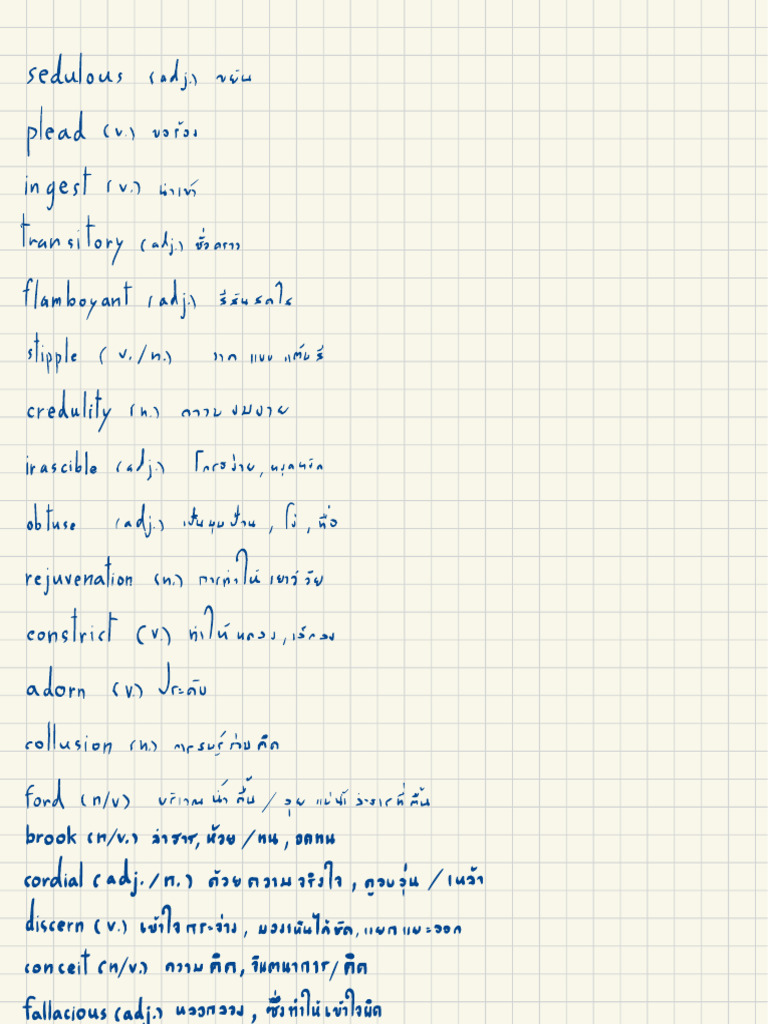 sedulous (adj.) ขยัน
plead (v.) ขอร้อง
ingest (v.) นำเข้า
transitory (adj.) ชั่วคราว
flamboyant (adj.) สีสันสดใส
stipple (v./n.) วาด แบบ แต้มสี
credulity (n.) ความ งมงาย
irascible (adj.) โกรธง่าย, หงุดหงิด
obtuse (adj.) เป็นมุมป้าน, โง่, ทื่อ
rejuvenation (n.) การทำให้ เยาว์ วัย
constrict (v.) ทำให้ หดลง, เล็กลง
adorn (v.) ประดับ
collusion (n.) การสมรู้ร่วมคิด
ford (n/v) บริเวณ น้ำ ตื้น / ลุย แม่น้ำ ลำธารที่ตื้น
brook (n/v.) ลำธาร, ห้วย / ทน, อดทน
cordial (adj./n.) ด้วย ความ จริงใจ, อบอุ่น / เหล้า
discern (v.) เข้าใจ กระจ่าง, มองเห็นได้ชัด, แยกแยะออก
conceit (n/v.) ความ คิด, จินตนาการ / คิด
fallacious (adj.) หลอกลวง, ซึ่งทำให้ เข้าใจผิด